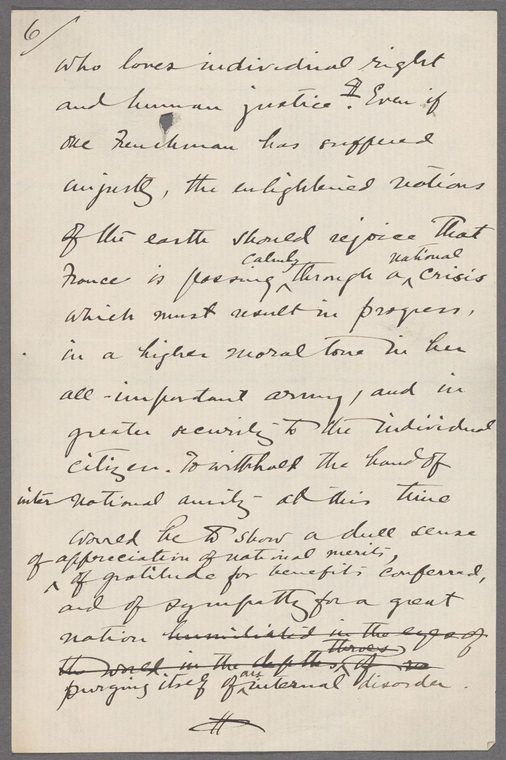 6/
who loves individual right
and human justice. # Even if
one Frenchman has suffered
unjustly, the enlightened nations
of the earth should rejoice that
calmly national
France is passing ^ through a ^ crisis
which must result in progress,
in a higher moral tone in her
all-important army, and in
greater security to the individual
citizen. To withhold the hand of
international amity at this time
would be to show a dull sense
of appreciation of national merits,
^ of gratitude for benefits conferred,
and of sympathy for a great
nation humiliated in the eyes of
throes
the world in the depths ^ of
an
purging itself of ^ internal disorder.
#